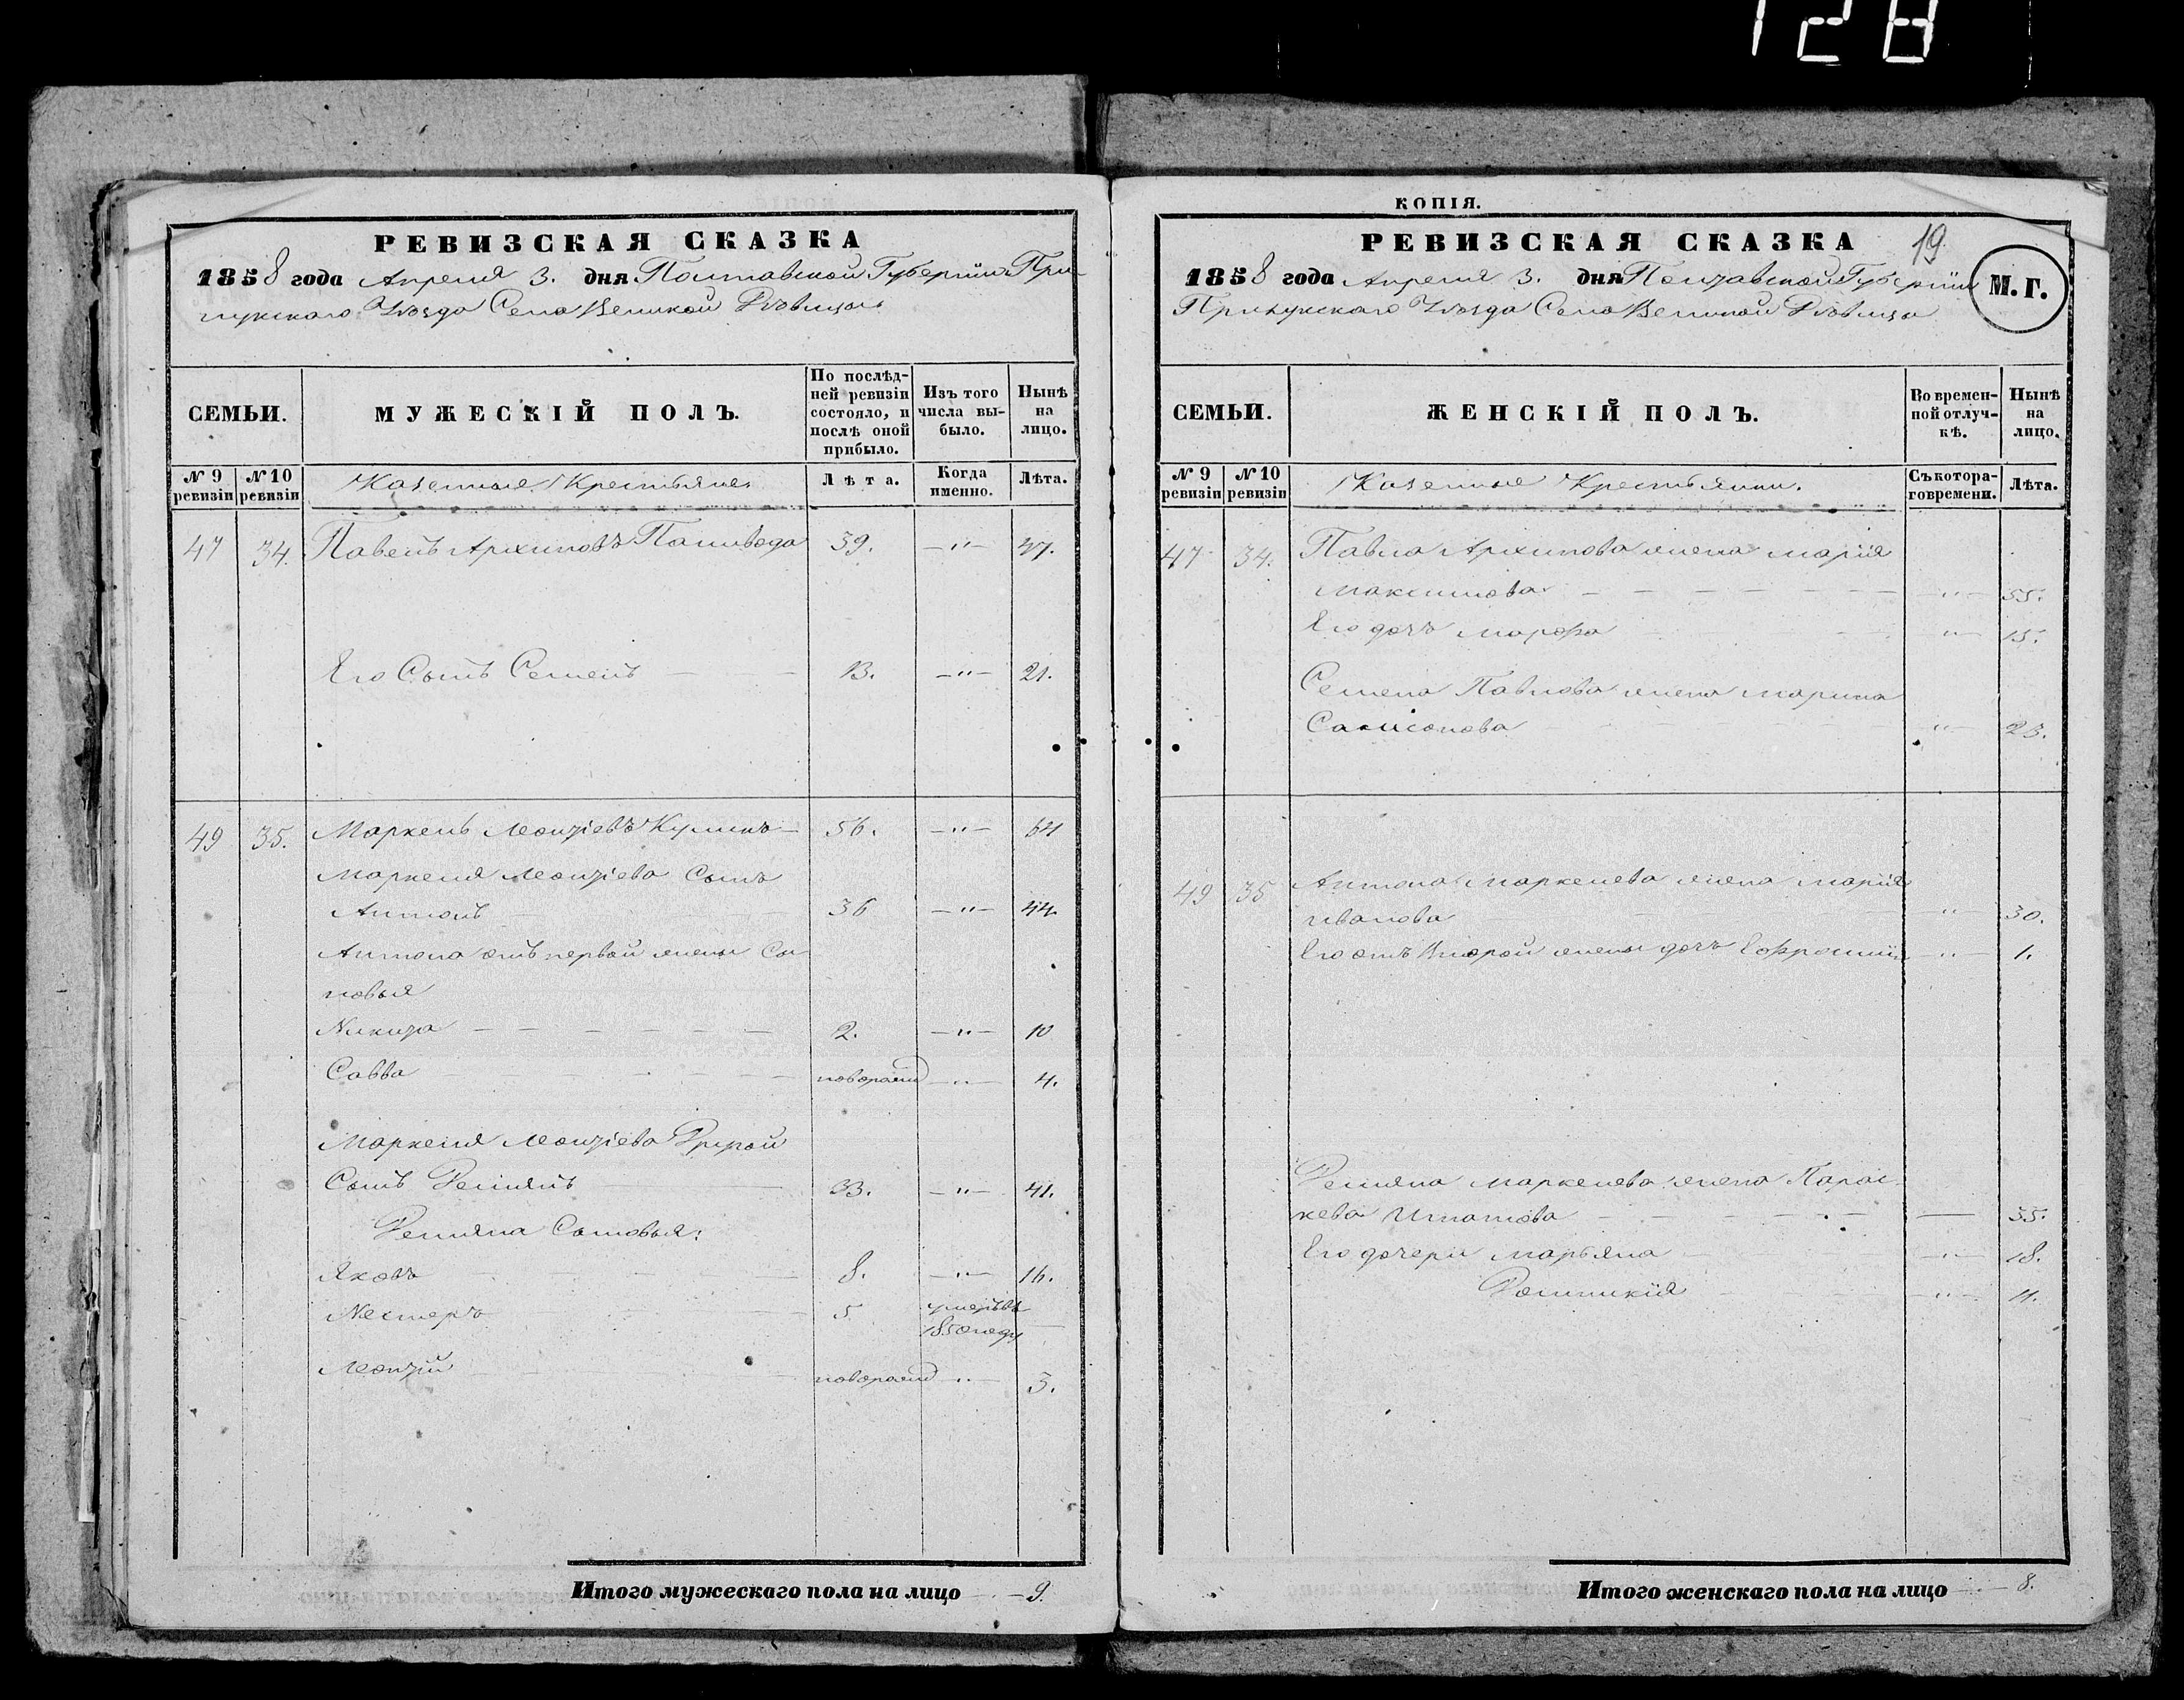 128
РЕВИЗСКАЯ СКАЗКА
1858 года Апреля 3. дня Полтавской Губернии При-
лукскаго Уѣзда Села Великой Дѣвицы
СЕМЬИ.
МУЖЕСКІЙ ПОЛЪ.
По послѣд-
ней ревизіи
состояло, и
послѣ оной
прибыло.
Изъ того
числа вы-
было.
Нынѣ
на
лицо.
№ 9
ревизіи
№ 10
ревизіи
Казенные Крестьяне
Лѣта.
Когда
именно.
Лѣта.
47 34. Павелъ Архиповъ Паливода 39. —"— 47.
Его Сынъ Семенъ 13. —"— 21.
49 35. Маркелъ Леонтіевъ Куликъ 56. —"— 64
Маркела Леонтіева Сынъ
Антонъ 36 —"— 44.
Антона отъ первой жены Сы-
новья
Никита 2. —"— 10
Савва новорожд —"— 4.
Маркела Леонтіева Другой
Сынъ Демянъ 33. —"— 41.
Демяна Сыновья:
Яковъ 8. —"— 16.
Нестеръ 5 умеръ въ
1850 году
Леонтій новорожд —"— 3.
Итого мужескаго пола на лицо 9.
КОПІЯ.
РЕВИЗСКАЯ СКАЗКА
19
М. Г.
1858 года Апреля 3. дня Полтавской Губерніи
Прилукскаго Уѣзда Села Великой Дѣвицы
СЕМЬИ.
ЖЕНСКІЙ ПОЛЪ.
Во времен-
ной отлуч-
кѣ.
Нынѣ
на
лицо.
№ 9
ревизіи
№ 10
ревизіи
Казенные Крестьянки.
Съ котора-
го времени.
Лѣта.
47 34. Павла Архипова жена Марія
Максимова —"— 55.
Его дочь Марфа —"— 15.
Семена Павлова жена Марина
Самсонова —"— 23.
49 35 Антона Маркелова жена Марія
Иванова —"— 30.
Его отъ Второй жены дочь —"— 1.
Демяна Маркелова жена Парас-
кева Игнатова — 35.
Его дочери Марьяна —"— 18.
Домникія —"— 11.
Итого женскаго пола на лицо 8.